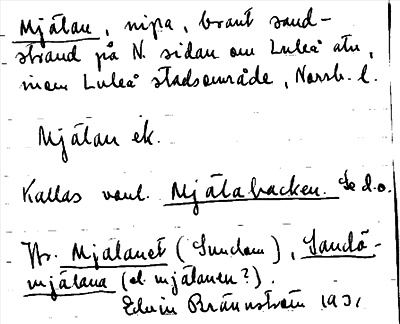 Mjälan, nipa, brant sand-
strand på N. sidan om Luleå älv,
inom Luleå stadsområde, Norrb. l.
Mjälan ek.
Kallas vanl. Mjälabacken. Se d.o.
Jfr. Mjälanet (Sundom), Sandö-
mjälana (el. mjälanen?).
Edvin Brännström 1931